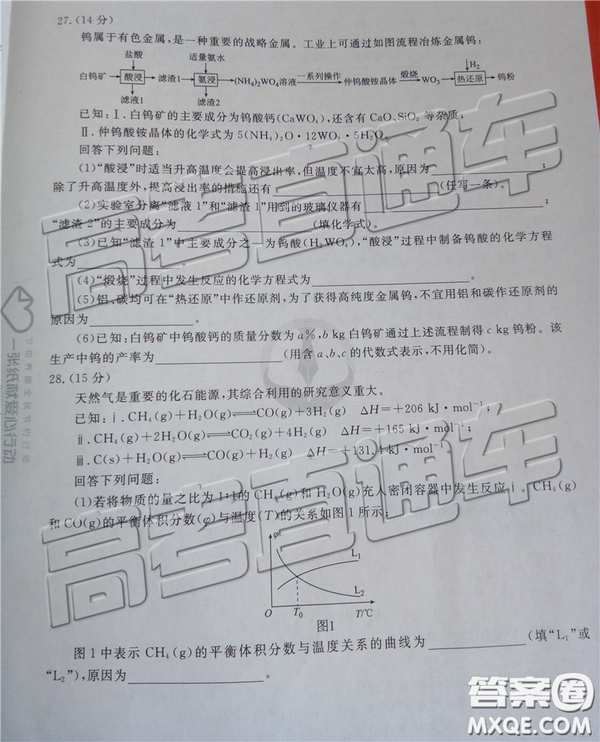 27.(14 分)
钨属于有色金属,是一种重要的战略金属。工业上可通过如图流程冶炼金属钨:
盐酸 适量氨水 H₂
白钨矿 酸浸 滤渣1 氨浸 (NH₄)₂WO₄溶液 一系列操作 仲钨酸铵晶体 煅烧 WO₃ 热还原 钨粉
滤液1 滤渣2
已知:Ⅰ.白钨矿的主要成分为钨酸钙(CaWO₄),还含有 CaO、SiO₂ 等杂质;
Ⅱ.仲钨酸铵晶体的化学式为 5(NH₄)₂O·12WO₃·5H₂O。
回答下列问题:
(1)“酸浸”时适当升高温度会提高浸出率,但温度不宜太高,原因为 ;
除了升高温度外,提高浸出率的措施还有 (任写一条)。
(2)实验室分离“滤液 1”和“滤渣 1”用到的玻璃仪器有 ;
“滤渣 2”的主要成分为 (填化学式)。
(3)已知“滤渣 1”中主要成分之一为钨酸(H₂WO₄),“酸浸”过程中制备钨酸的化学方程
式为 。
(4)“煅烧”过程中发生反应的化学方程式为 。
(5)铝、碳均可在“热还原”中作还原剂,为了获得高纯度金属钨,不宜用铝和碳作还原剂的
原因为 。
(6)已知:白钨矿中钨酸钙的质量分数为 a%,b kg 白钨矿通过上述流程制得 c kg 钨粉。该
生产中钨的产率为 (用含 a、b、c 的代数式表示,不用化简)。
28.(15 分)
天然气是重要的化石能源,其综合利用的研究意义重大。
已知:ⅰ.CH₄(g)+H₂O(g)⇌CO(g)+3H₂(g) ΔH=+206 kJ·mol⁻¹;
ⅱ.CH₄(g)+2H₂O(g)⇌CO₂(g)+4H₂(g) ΔH=+165 kJ·mol⁻¹;
ⅲ.C(s)+H₂O(g)⇌CO(g)+H₂(g) ΔH=+131.4 kJ·mol⁻¹。
回答下列问题:
(1)若将物质的量之比为 1∶1的 CH₄(g)和 H₂O(g)充入密闭容器中发生反应ⅰ。CH₄(g)
和 CO(g)的平衡体积分数(φ)与温度(T)的关系如图 1 所示:
φ
L₁
L₂
O T₀ T/℃
图1
图 1 中表示 CH₄(g)的平衡体积分数与温度关系的曲线为 (填“L₁”或
“L₂”),原因为 。
高考直通车
高考直通车
高考直通车
一张纸献爱心行动
答案圈
MXQE.COM